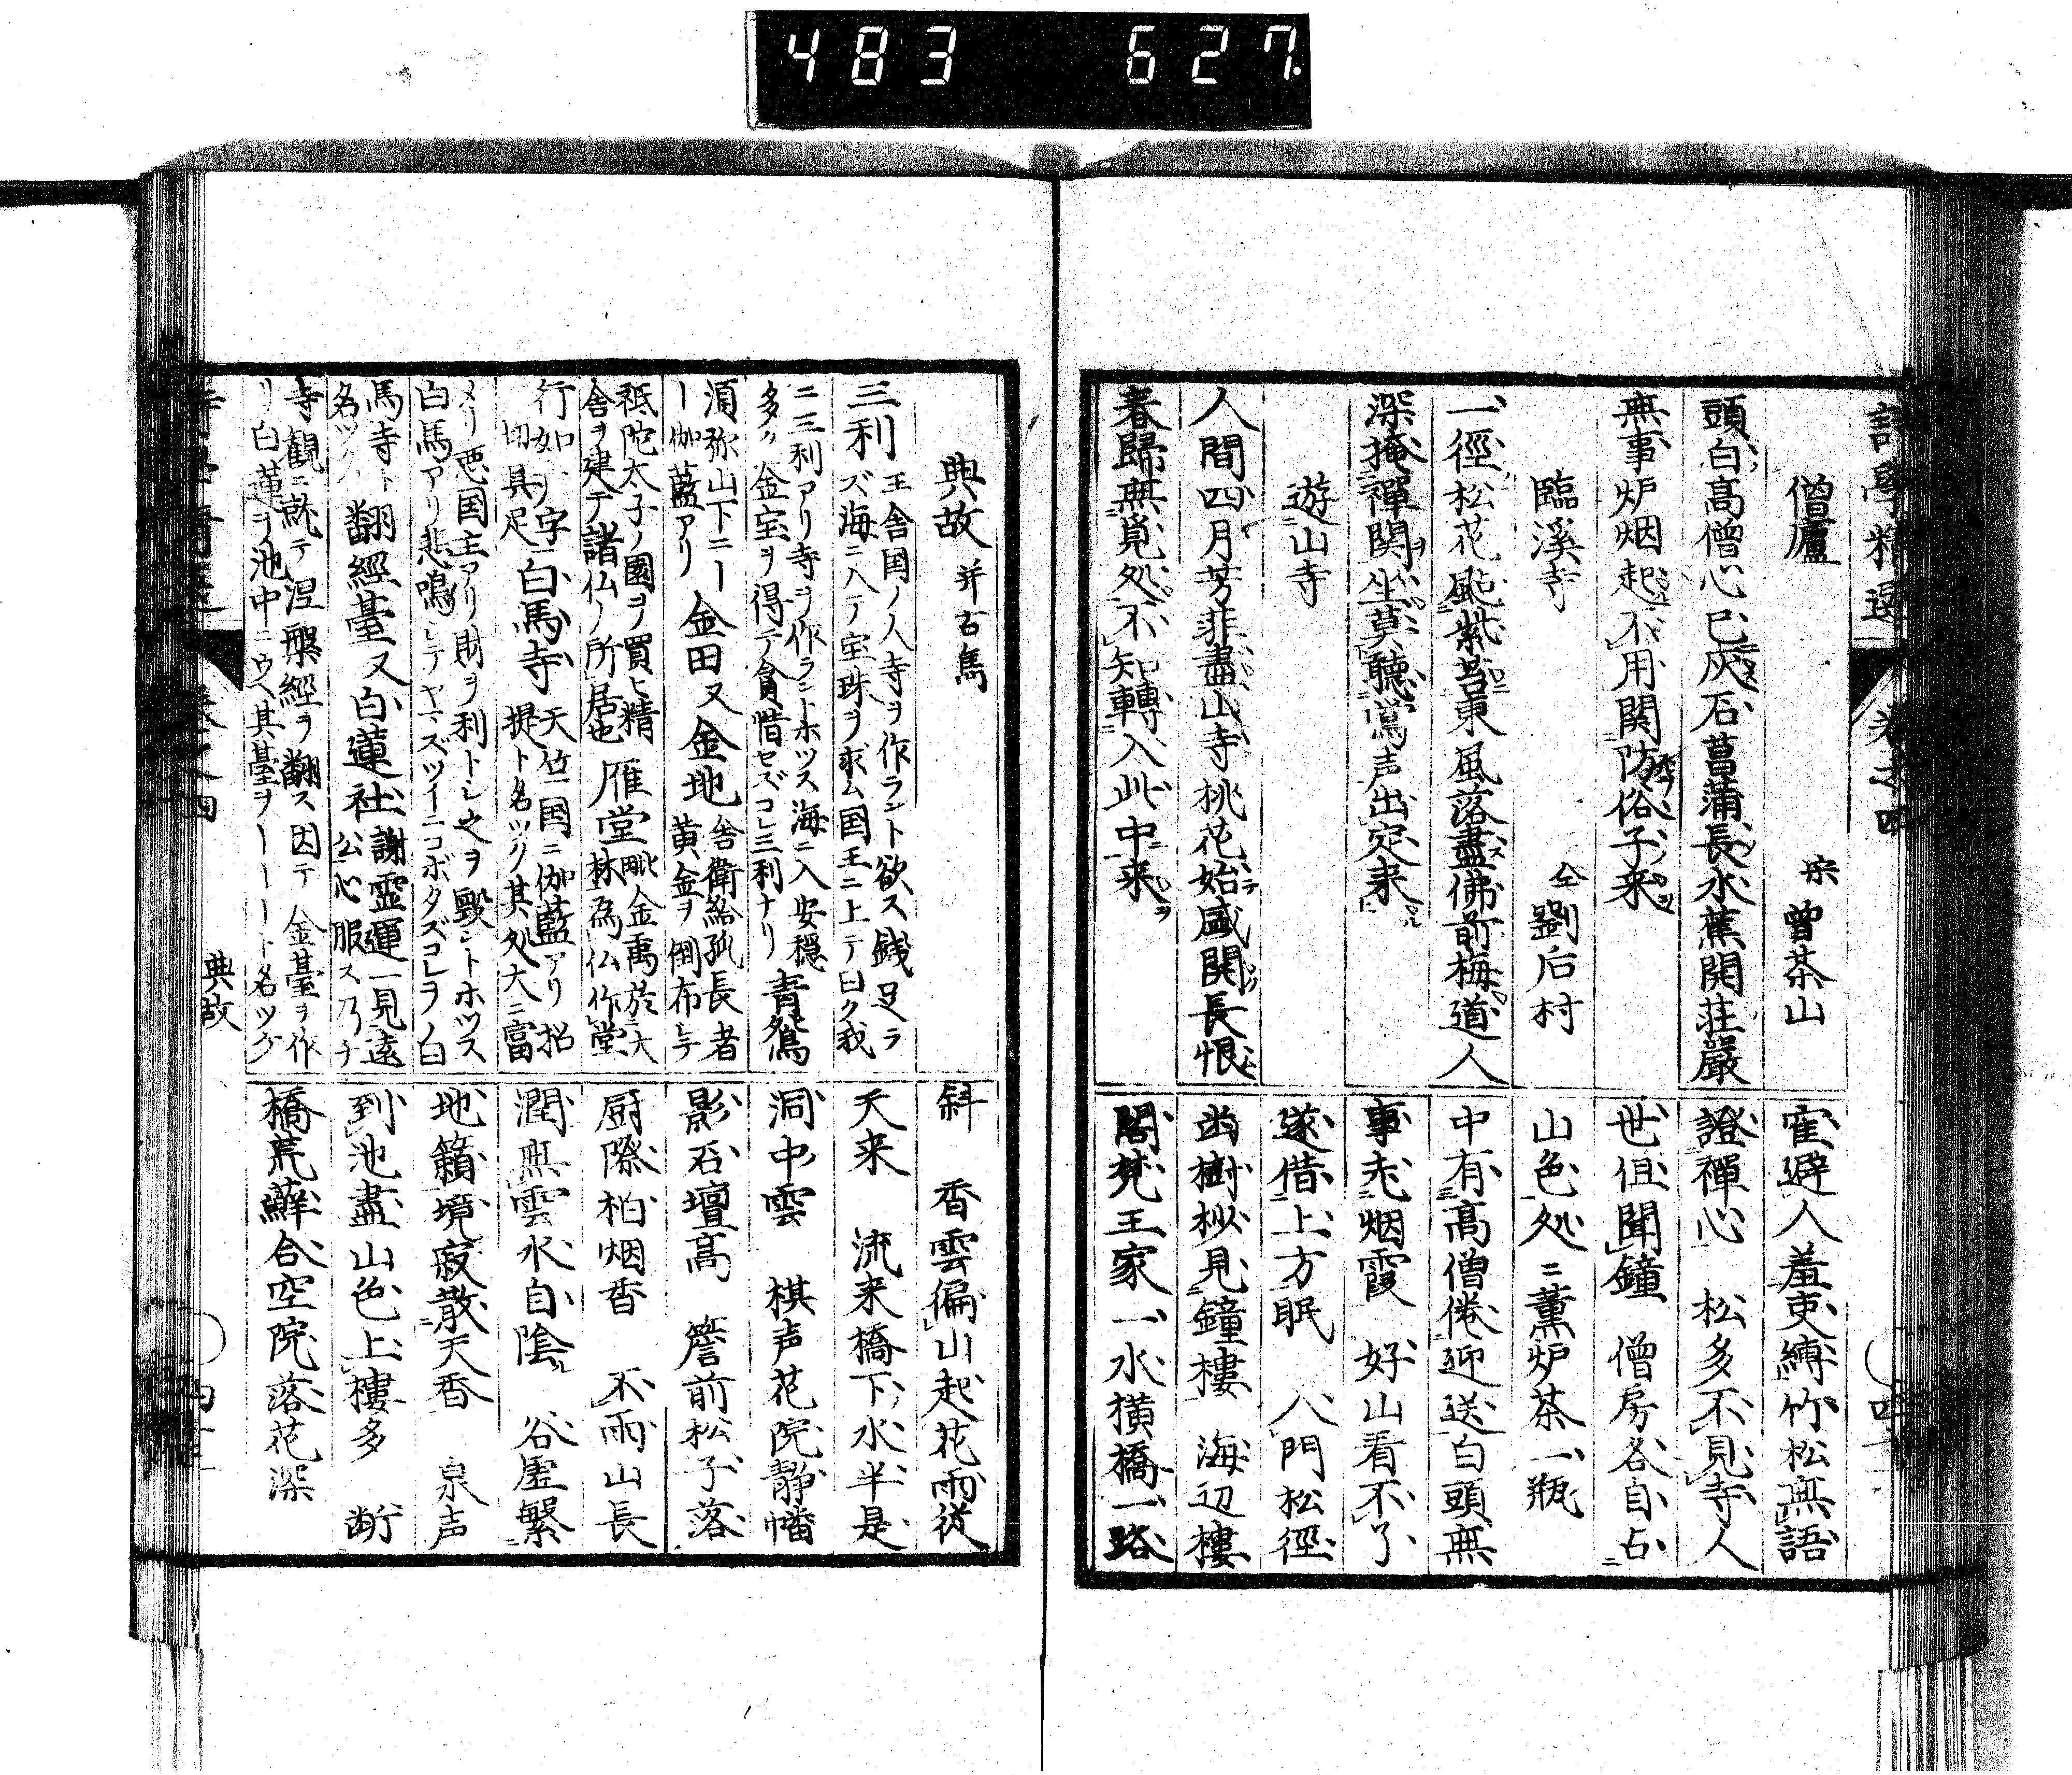 483 627
僧廬 宋 曽茶山
頭白高僧心已灰石菖蒲長水蕉開荘嚴
無事炉烟起不用関防俗子来
臨溪寺 仝 劉后村
一徑松花颭紫苔東風落盡佛前梅道人
深掩禪関坐莫聽鴬声出定来
遊山寺
人間四月芳菲盡山寺桃花始盛開長恨
春歸無覓処不知轉入此中来
寉避人羞吏縛竹松無語
證禪心 松多不見寺人
世但聞鐘 僧房各自占
山色処ニ薫炉茶一瓶
中有高僧倦迎送白頭無
事老烟霞 好山看不了
遂借上方眠 入門松徑
幽樹杪見鐘樓 海辺樓
閣梵王家一水横橋一路
詩學精選 卷之四
典故 并古馬
三利 王舎国ノ人寺ヲ作ラント欲ス銭足ラ
ズ海ニ入テ宝珠ヲ求ム国王ニ上テ曰ク我
ニ三利アリ寺ヲ作ラントホツス海ニ入安穏
多ク金宝ヲ得テ貪惜セズコレ三利ナリ 青鴛
須弥山下ニ一
一伽藍アリ 金田又金地 舎衛給孤長者
黄金ヲ倒布シテ
祇陀太子ノ園ヲ買ヒ精
舎ヲ建テ諸仏ノ所居也 雁堂 毗金禹於大
林為仏作堂
行如ノ字
切具足 白馬寺 天竺国ニ伽藍アリ招
提ト名ツク其処大ニ富
メリ悪国主アリ財ヲ利トシ之ヲ毀ントホツス
白馬アリ悲鳴シテヤマズツイニコボタズコレラノ白
馬寺ト
名ツク 翻經臺又白蓮社 謝霊運一見遠
公心服ス乃チ
寺観ニ就テ涅槃經ヲ翻ス因テ金臺ヲ作
リ白蓮ヲ池中ニウヘ其臺ヲ一一一ト名ツク
斜 香雲徧山起花雨従
天来 流来橋下水半是
洞中雲 棋声花院静幡
影石壇高 簷前松子落
厨際柏烟香 不雨山長
潤無雲水自陰 谷虚繁
地籟境寂散天香 泉声
到池盡山色上樓多 断
橋荒蘚合空院落花深
典故